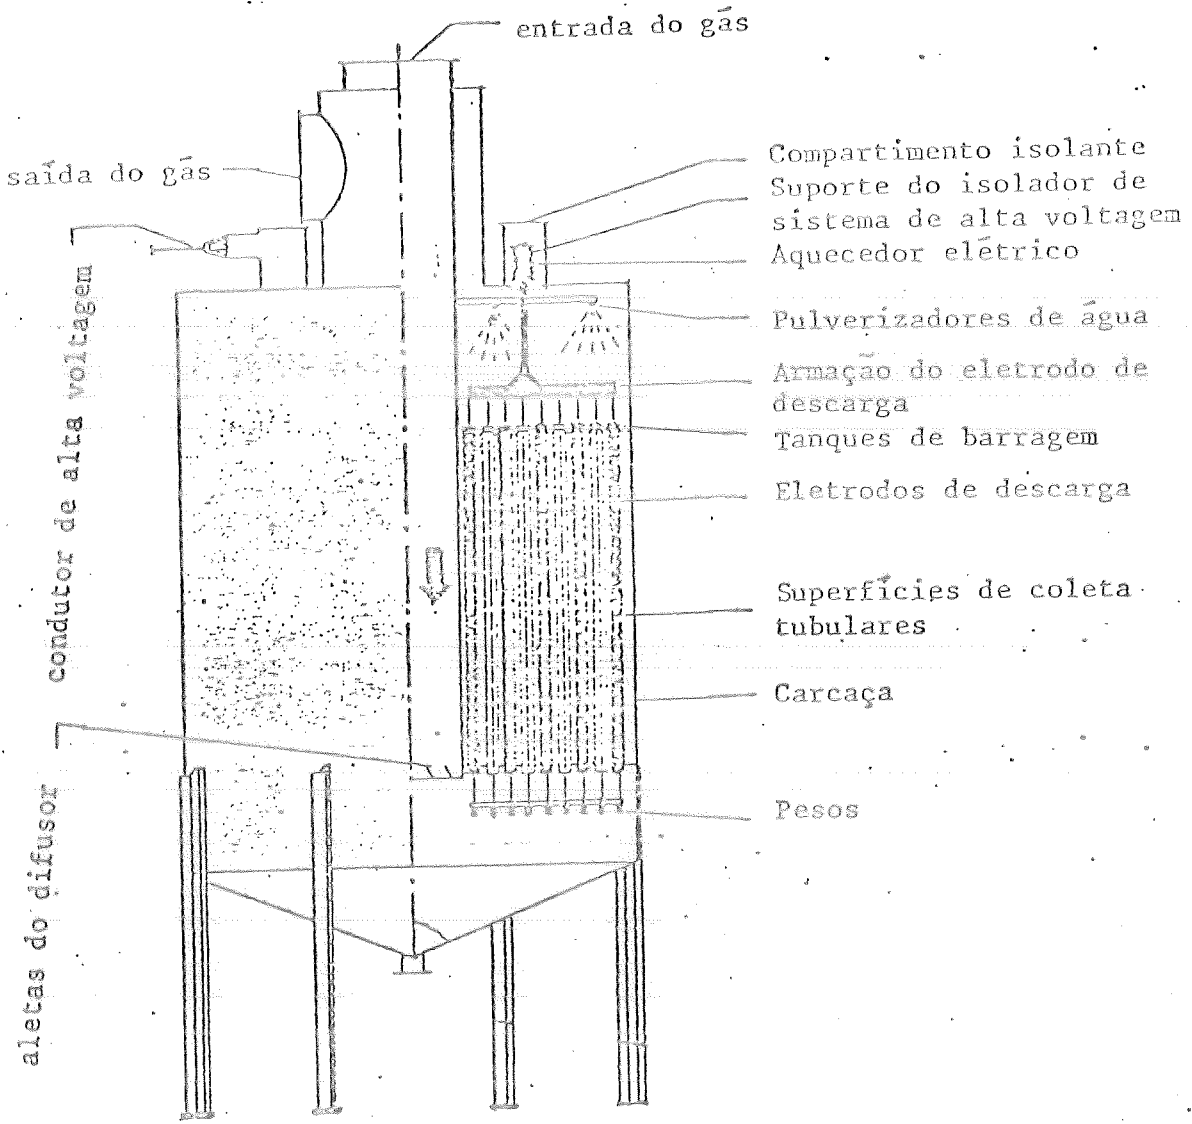 entrada do gás
saída do gás
condutor de alta voltagem
aletas do difusor
Compartimento isolante
Suporte do isolador de
sistema de alta voltagem
Aquecedor elétrico
Pulverizadores de água
Armação do eletrodo de
descarga
Tanques de barragem
Eletrodos de descarga
Superfícies de coleta
tubulares
Carcaça
Pesos